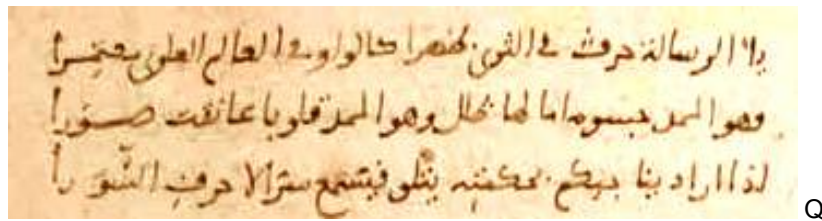 يا الرسالة حرف في الثرى ظهرا كالواو في العالم العلوي معتمرا
فهو الممد جسوما ما لها ظلل وهو الممد قلوبا عانقت صورا
اذا اراد يناجيكم بحكمته يتلو فيسمع سر الاحرف السورا
Q